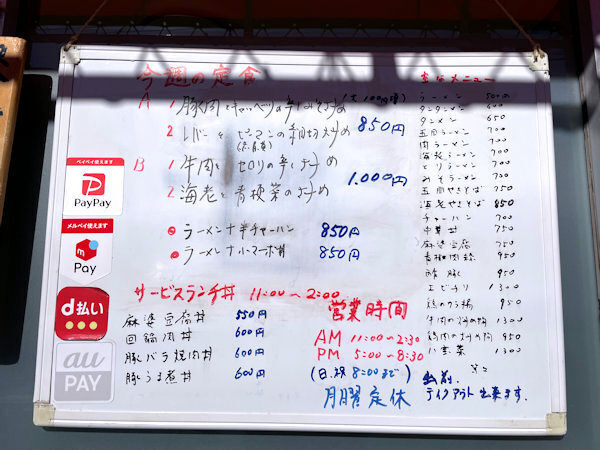 今週の定食
A 1 豚肉とキャベツの辛しみそ炒め (大100円増)
2 レバーとピーマンの細切り炒め 850円
B 1 牛肉とセロリの辛し炒め
2 海老と青梗菜のいため 1.000円
ラーメン+半チャーハン 850円
ラーメン+小マーボ丼 850円
サービスランチ丼 11:00〜2:00
麻婆豆腐丼 550円
回鍋肉丼 600円
豚バラ焼肉丼 600円
豚うま煮丼 600円
営業時間
AM 11:00〜2:30
PM 5:00〜8:30
(日.祭 8:00まで)
月曜定休
主なメニュー
ラーメン 500円
タンタンメン 600
タンメン 650
五目ラーメン 700
肉ラーメン 700
海老ラーメン 700
とりラーメン 700
みそラーメン 700
五目やきそば 750
海老やきそば 850
チャーハン 700
中華丼 750
麻婆豆腐 750
青椒肉絲 950
酢豚 950
エビチリ 1300
950
牛肉の 1300
950
八宝菜 1300
テイクアウト出来ます.
ペイペイ使えます
PayPay
メルペイ使えます
Pay
d払い
au
PAY